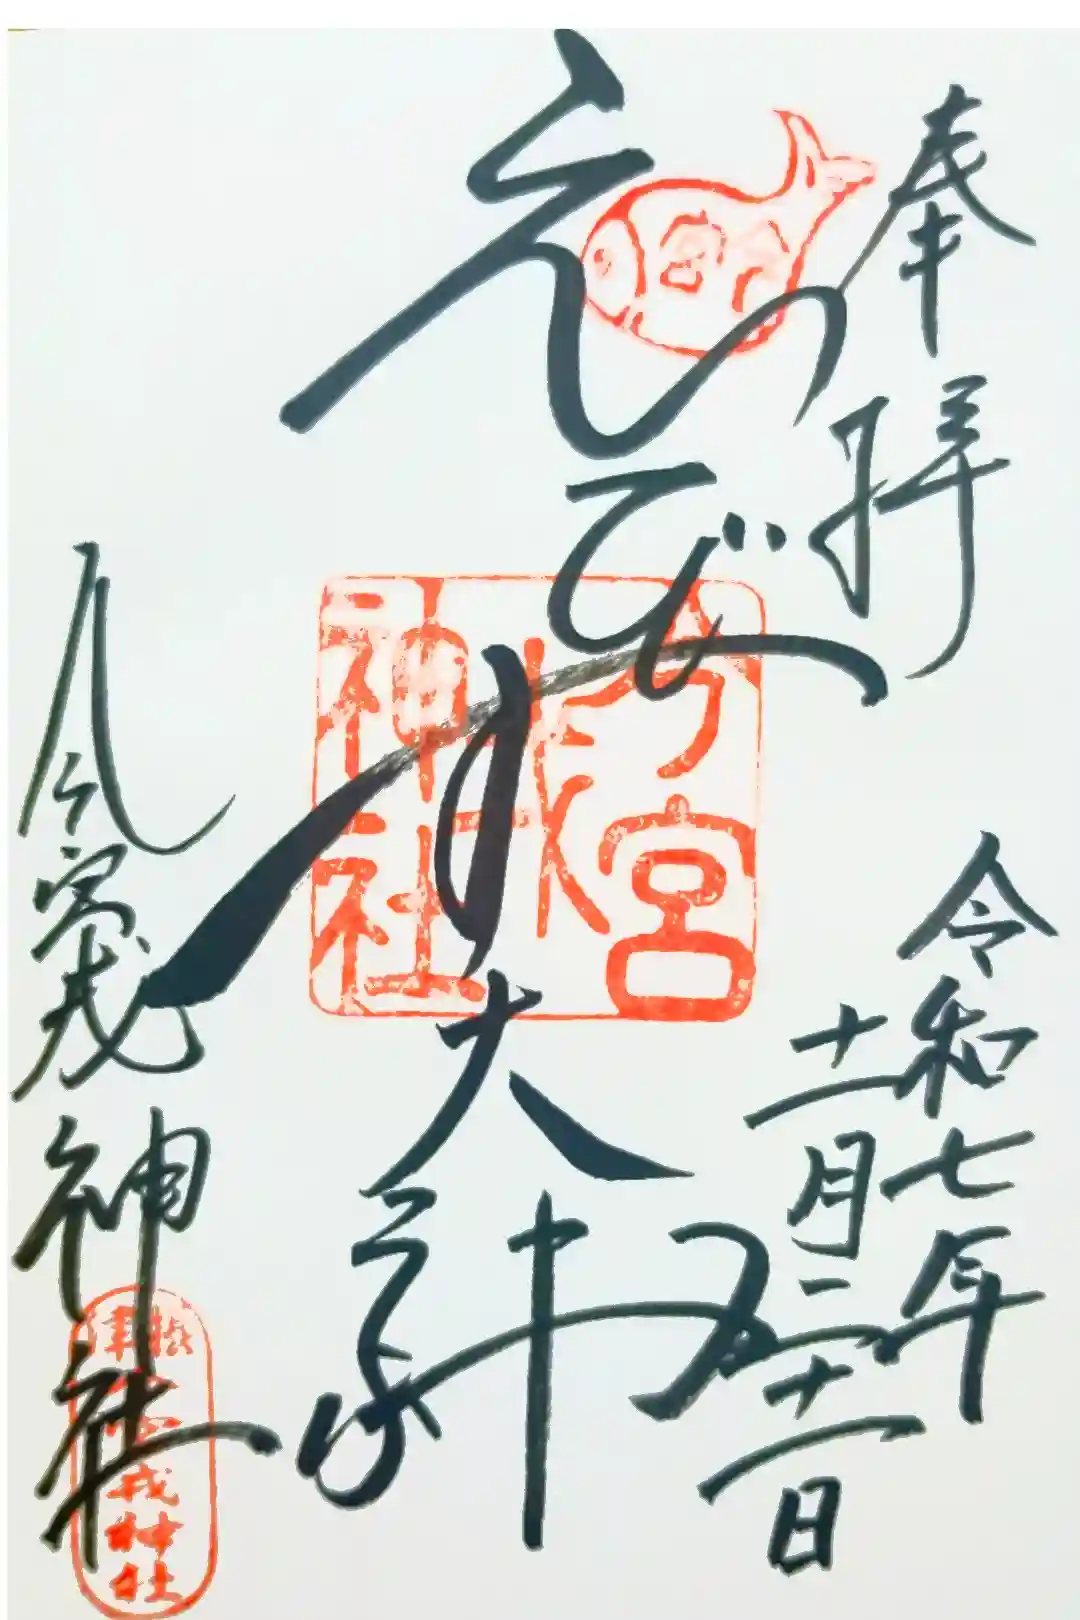 奉拝
令和七年
十一月二十一日
えびす大神
今宮戎神社
今宮
戎
神社
今宮戎神社